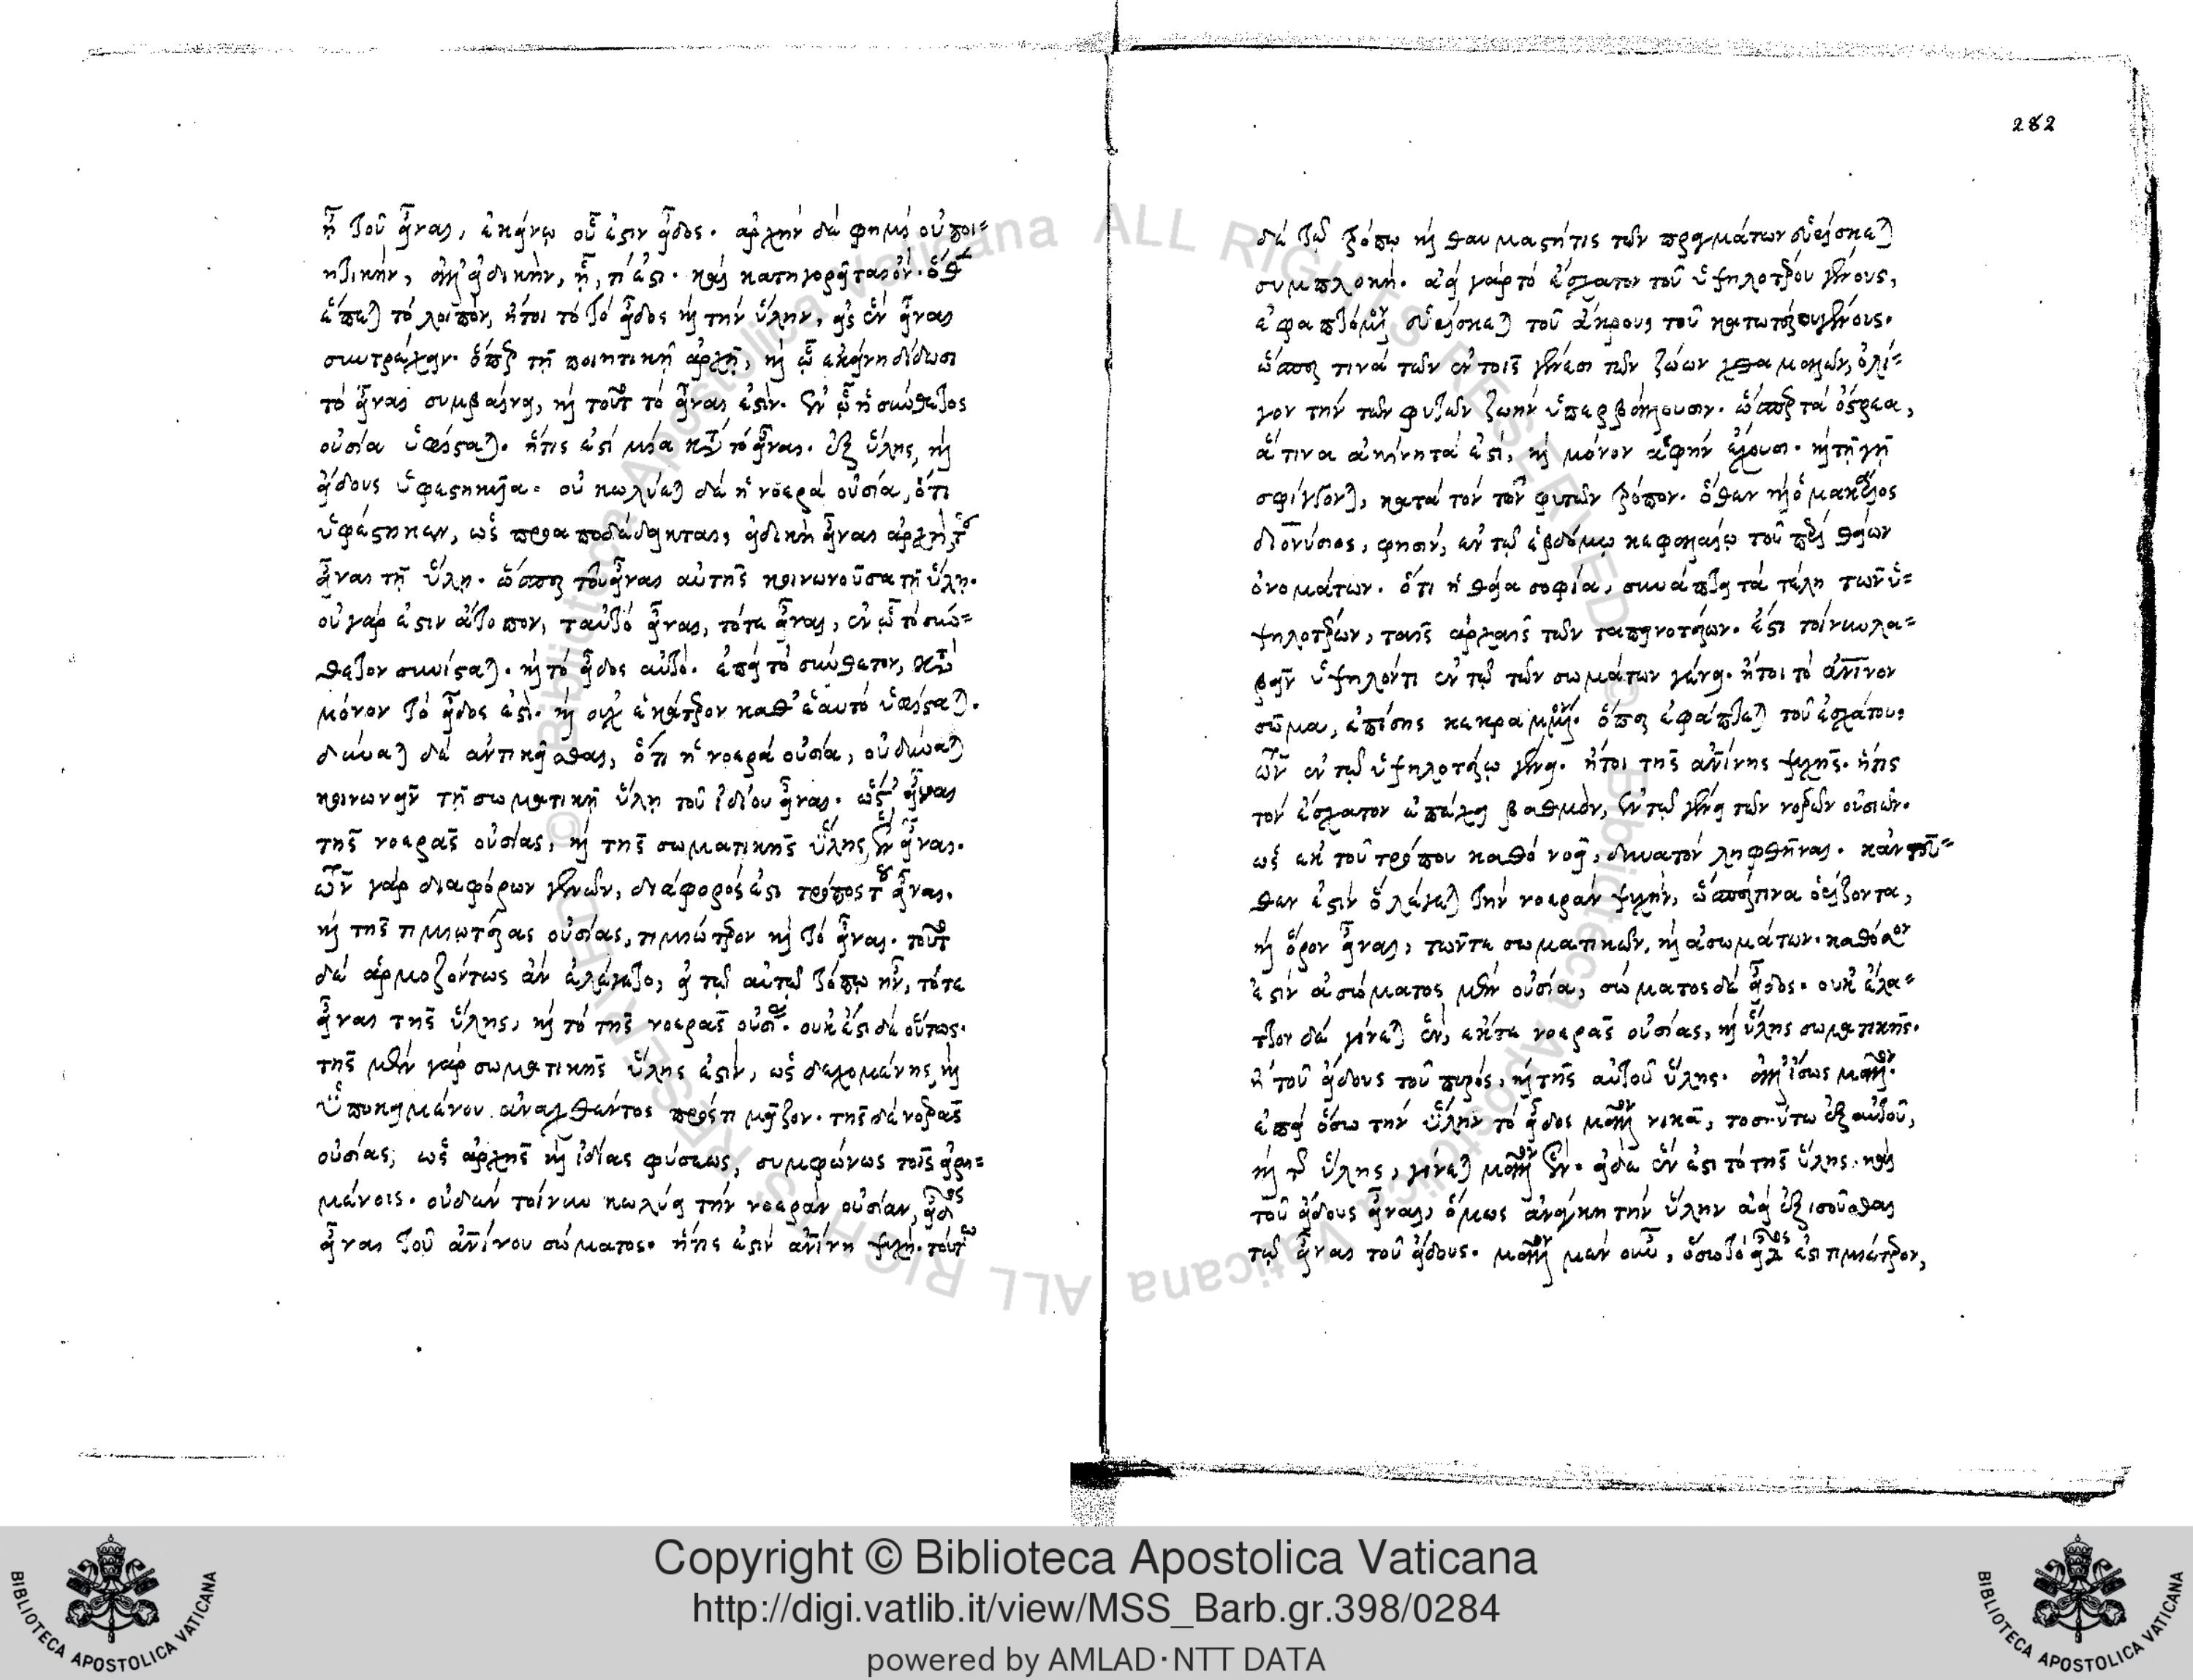 ἢ τοῦ εἶναι, ἐκείνῳ οὗ ἐστὶν εἶδος. ἀρχὴν δέ φημὶ οὐ ποι=
ητικὴν, ἀλλ' εἰδικὴν, ᾗ, τὶ ἐστι. καὶ κατηγορεῖται ὄν. ὅθεν
ἕπεται τὸ λοιπὸν, ἤτοι τὸ τὸ εἶδος καὶ τὴν ὕλην, εἰς ἓν εἶναι
συντρέχειν. ὅπερ τῇ ποιητικῇ ἀρχῇ, καὶ ᾧ ἐκείνη δίδωσι
τὸ εἶναι συμβαίνει, καὶ τοῦτο τὸ εἶναι ἐστὶν. ἐν ᾧ ἡ σύνθετος
οὐσία ὑφίσταται. ἥτις ἐστὶ μία κατὰ τὸ εἶναι. ἐξ ὕλης, καὶ
εἴδους ὑφεστηκυῖα. οὐ κωλύεται δὲ ἡ νοερὰ οὐσία, ὅτι
ὑφέστηκεν, ὡς προαποδέδεικται, εἰδικὴ εἶναι ἀρχὴ, τοῦ
εἶναι τῇ ὕλῃ. ὥσπερ τοῦ εἶναι αὐτῆς κοινωνοῦσα τῇ ὕλῃ.
οὐ γάρ ἐστιν ἄτοπον, ταυτὸ εἶναι, τότε εἶναι, ἐν ᾧ τὸ σύν=
θετον συνίσταται. καὶ τὸ εἶδος αὐτό. ἐπεὶ τὸ σύνθετον, κατὰ
μόνον τὸ εἶδος ἐστὶ. καὶ οὐχ ἑκάτερον καθ' ἑαυτὸ ὑφίσταται.
δύναται δὲ ἀντικεῖσθαι, ὅτι ἡ νοερὰ οὐσία, οὐ δύναται
κοινωνεῖν τῇ σωματικῇ ὕλῃ τοῦ ἰδίου εἶναι. ὥστ' εἶναι
τῆς νοερᾶς οὐσίας, καὶ τῆς σωματικῆς ὕλης, ἓν εἶναι.
ὧν γὰρ διαφόρων γενῶν, διάφορός ἐστι τρόπος τοῦ εἶναι.
καὶ τῆς τιμιωτέρας οὐσίας, τιμιώτερον καὶ τὸ εἶναι. τοῦτο
δὲ ἁρμοζόντως ἂν ἐλέγετο, εἰ τῷ αὐτῷ τρόπῳ ἦν, τότε
εἶναι τῆς ὕλης, καὶ τὸ τῆς νοερᾶς οὐσίας. οὐκ ἔστι δὲ οὕτως.
τῆς μὲν γὰρ σωματικῆς ὕλης ἐστὶν, ὡς δεχομένης, καὶ
ὑποκειμένου ἀναχθέντος πρός τι μεῖζον. τῆς δὲ νοερᾶς
οὐσίας, ὡς ἀρχῆς καὶ ἰδίας φύσεως, συμφώνως τοῖς εἰρη=
μένοις. οὐδὲν τοίνυν κωλύει τὴν νοερὰν οὐσίαν, εἶδος
εἶναι τοῦ ἀνθρωπίνου σώματος. ἥτις ἐστὶν ἀνθρωπίνη ψυχή. τούτῳ
282
δὲ τῷ τρόπῳ καὶ θαυμαστή τις τῶν πραγμάτων εὑρίσκεται
συμπλοκή. ἀεὶ γὰρ τὸ ἔσχατον τοῦ ὑψηλοτέρου γένους,
ἐφαπτόμενον εὑρίσκεται τοῦ ἄκρου, τοῦ κατωτέρου γένους.
ὥσπερ τινὰ τῶν ἐν τοῖς γένεσι τῶν ζώων χθαμαλῶν, ὀλί=
γον τὴν τῶν φυτῶν ζωὴν ὑπερβάλλουσιν. ὥσπερ τὰ ὄστρεα,
ἅτινα ἀκίνητά ἐστι, καὶ μόνον ἁφὴν ἔχουσι. καὶ τῇ γῇ
σφίγγονται, κατὰ τὸν τῶν φυτῶν τρόπον. ὅθεν καὶ ὁ μακάριος
διονύσιος, φησὶν, ἐν τῷ ἑβδόμῳ κεφαλαίῳ τοῦ περὶ θείων
ὀνομάτων. ὅτι ἡ θεία σοφία, συνάπτει τὰ τέλη τῶν ὑ=
ψηλοτέρων, ταῖς ἀρχαῖς τῶν ταπεινοτέρων. ἔστι τοίνυν λα=
βεῖν ὑψηλόν τι ἐν τῷ τῶν σωμάτων γένει. ἤτοι τὸ ἀνθρώπινον
σῶμα, ἐπίσης κεκραμένον. ὅπερ ἐφάπτεται τοῦ ἐσχάτου,
ὧν ἐν τῷ ὑψηλοτέρῳ γένει. ἤτοι τῆς ἀνθρωπίνης ψυχῆς. ἥτις
τὸν ἔσχατον ἐπέχει βαθμὸν, ἐν τῷ γένει τῶν νοερῶν οὐσιῶν.
ὡς ἐκ τοῦ τρόπου καθὸ νοεῖ, δυνατὸν ληφθῆναι. κἀντεῦ=
θεν ἐστὶν ὃ λέγεται τὴν νοερὰν ψυχὴν, ὥσπερ τινα ὁρίζοντα,
καὶ ὅρον εἶναι, τῶν τε σωματικῶν, καὶ ἀσωμάτων. καθόσον
ἐστὶν ἀσώματος μὲν οὐσία, σώματος δὲ εἶδος. οὐκ ἔλα=
ττον δὲ γίνεται ἓν, ἐκ τε νοερᾶς οὐσίας, καὶ ὕλης σωματικῆς.
ἢ τοῦ εἴδους τοῦ πυρὸς, καὶ τῆς αὐτοῦ ὕλης. ἀλλ' ἴσως μᾶλλον.
ἐπεὶ ὅσω τὴν ὕλην τὸ εἶδος μᾶλλον νικᾷ, τοσούτω ἐξ αὐτοῦ,
καὶ τῆς ὕλης, γίνεται μᾶλλον ἕν. εἰ δὲ ἕν ἐστι τὸ τῆς ὕλης. καὶ
τοῦ εἴδους εἶναι, ὅμως ἀνάγκη τὴν ὕλην ἀεὶ ἐξισοῦσθαι
τῷ εἶναι τοῦ εἴδους. μᾶλλον μὲν οὖν, ὅσω τὸ εἶδος ἐστι τιμιώτερον,
Copyright © Biblioteca Apostolica Vaticana
http://digi.vatlib.it/view/MSS_Barb.gr.398/0284
powered by AMLAD·NTT DATA
BIBLIOTECA APOSTOLICA VATICANA
BIBLIOTECA APOSTOLICA VATICANA